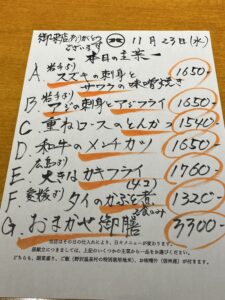 御来店ありがとうございます 11月23日(水)
本日の主菜
A. 岩手より スズキの刺身とサワラの味噌焼き 1650-
B. 岩手より アジの刺身とアジフライ 1650-
C. 重ねロースのとんかつ 1540-
D. 和牛のメンチカツ 1650-
E. 広島より 大きなカキフライ(4コ) 1760-
F. 愛媛より タイのかぶと煮 1320-
G. おまかせ御膳 3300-
当店はその日の仕入れにより、日々メニューが変わります。